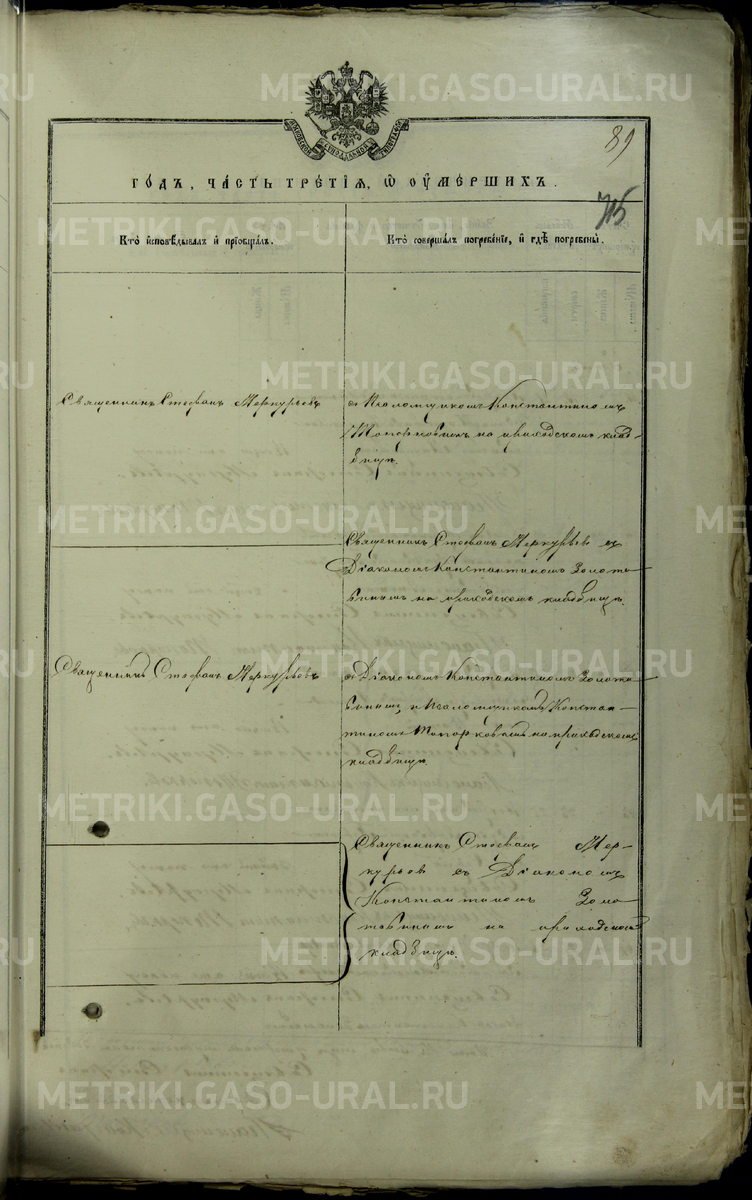 89
715
МОСКОВСКОЙ СѴНОДАЛЬНОЙ ТИПОГРАФІИ
ГО́ДЪ, ЧА́СТЬ ТРЕ́ТІѦ, Ѡ҆ ОУ҆МЕ́РШИХЪ.
Кто̀ и҆сповѣ́дывалъ и҆ прїѡбща́лъ.
Кто̀ соверша́лъ погребе́нїе, и҆ гдѣ̀ погребены̀.
Священникъ Стефанъ Меркурьевъ
съ Псаломщикомъ Константиномъ
Топорковымъ на приходскомъ клад-
бищѣ.
Священникъ Стефанъ Меркурьевъ съ
Діакономъ Константиномъ Золота-
винымъ на приходскомъ кладбищѣ.
Священникъ Стефанъ Меркурьевъ
съ Діакономъ Константиномъ Золота-
винымъ и Псаломщикомъ Констан-
тиномъ Топорковымъ на приходскомъ
кладбищѣ.
Священникъ Стефанъ Мер-
курьевъ съ Діакономъ
Константиномъ Золо-
тавинымъ на приходскомъ
кладбищѣ.
METRIKI.GASO-URAL.RU